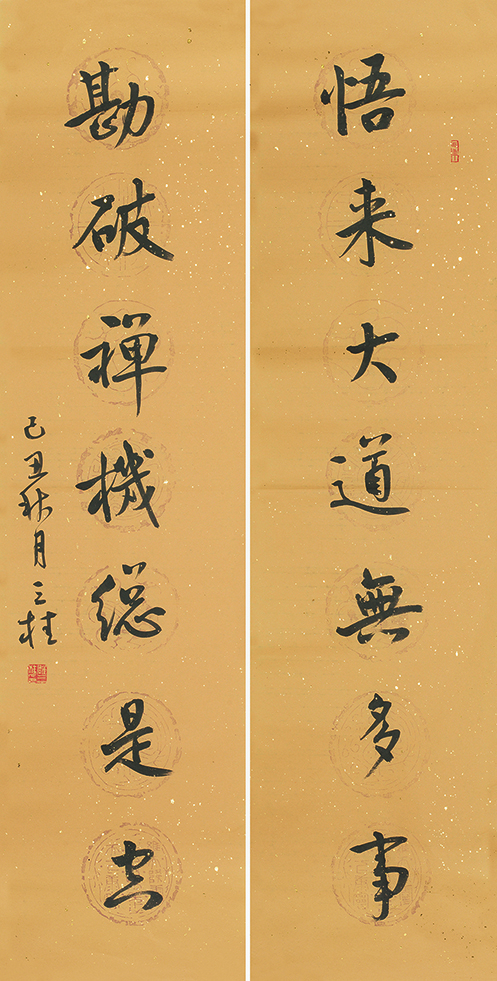 悟来大道無多事
勘破禅機總是空
己丑秋月三桂